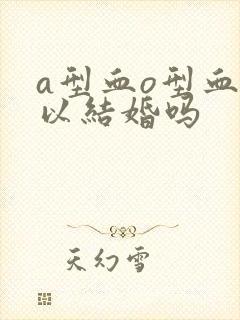 a型血o型血
以结婚吗
天幻雪